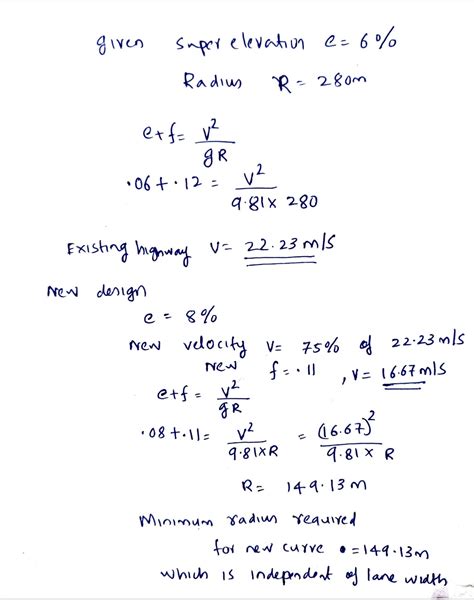 given super elevation e = 6%
Radius R = 280m
e+f = V²/gR
.06 + .12 = V²/9.81 × 280
Existing highway V = 22.23 m/s
New design
e = 8%
new velocity V = 75% of 22.23 m/s
new f = .11, V = 16.67 m/s
e+f = V²/gR
.08 + .11 = V²/9.81×R = (16.67)²/9.81 × R
R = 149.13 m
Minimum radius required
for new curve = 149.13m
which is independent of lane width